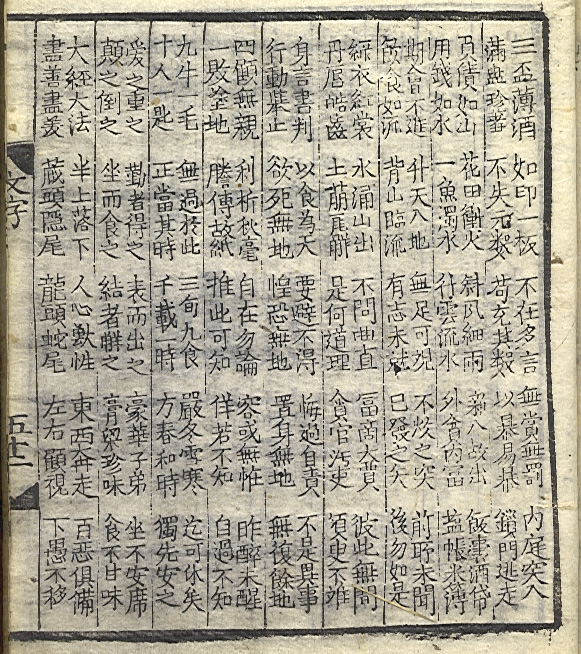 三盃薄酒 如印一板 不在多言 無賞無罰 內庭突入
滿盤珍羞 不失元數 苟充其數 以暴易暴 鎖門逃走
債如山 花田衝火 斜風細雨 新入故出 飯囊酒帒
用錢如水 一魚濁水 行雲流水 外貧內富 盐帳米簿
期會不進 升天入地 無足可觀 不炊之突 前所未聞
飲食如流 背山臨流 有志未就 已發之矢 後勿如是
綠衣紅裳 水涌山出 不問曲直 富商大賈 彼此無間
丹唇皓齒 土崩瓦解 是何道理 貪官污吏 須臾不離
身言書判 以食為天 要避不得 悔過自責 不是異事
行動舉止 欲死無地 惶恐無地 置身無地 無復餘地
四顧無親 利析秋毫 自在勿論 容或無怪 昨醉未醒
一敗塗地 謄傳故紙 推此可知 佯若不知 自過不知
九牛一毛 無過於此 三旬九食 嚴冬雪寒 迄可休矣
十人一匙 正當其時 千載一時 方春和時 獨先安之
愛之重之 勤者得之 表而出之 豪華子弟 坐不安席
顛之倒之 坐而食之 結者解之 膏粱珍味 食不甘味
大經大法 半上落下 人心獸性 東西奔走 百惡俱備
盡善盡美 藏頭隱尾 龍頭蛇尾 左右顧視 下愚不移
文字